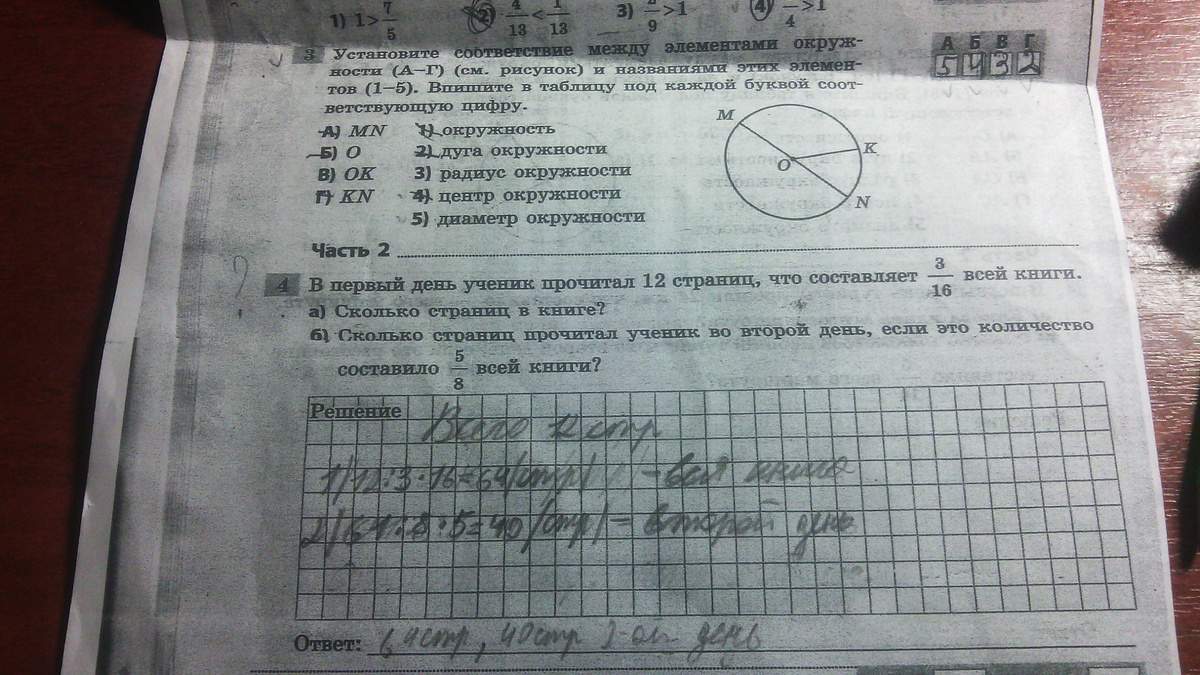 1) 1> 7/5 2) 4/13 < 1/13 3) /9 >1 4) /4 >1
3 Установите соответствие между элементами окруж-
ности (А–Г) (см. рисунок) и названиями этих элемен-
тов (1–5). Впишите в таблицу под каждой буквой соот-
ветствующую цифру.
А Б В Г
5 4 3 2
А) MN 1) окружность
Б) O 2) дуга окружности
В) OK 3) радиус окружности
Г) KN 4) центр окружности
5) диаметр окружности
M
K
O
N
Часть 2
4 В первый день ученик прочитал 12 страниц, что составляет 3/16 всей книги.
а) Сколько страниц в книге?
б) Сколько страниц прочитал ученик во второй день, если это количество
составило 5/8 всей книги?
Решение
Всего 12 стр
1) 12:3·16=64(стр) – вся книга
2) 64:8·5=40(стр) – второй день
Ответ: 64стр, 40стр 2-ой день